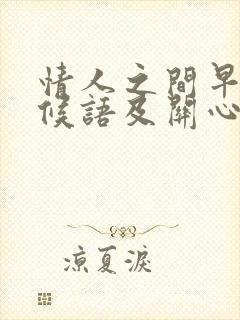 情人之間早
候語及關心
涼夏淚